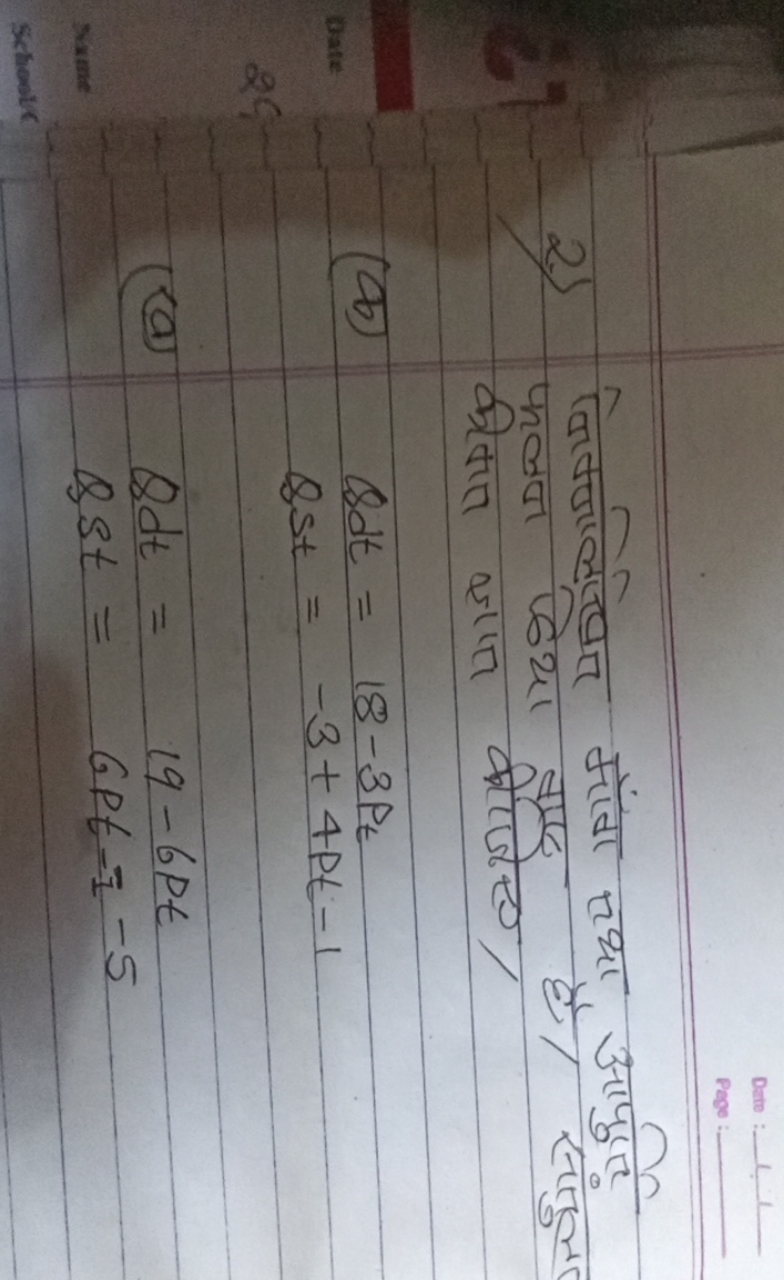 Date :
Page :
2) निम्नलिखित माँग तथा आपूर्ति
फलन दिया गया है/ संतुलन
कीमत ज्ञात कीजिए/
(क) Qdt = 18-3Pt
Qst = -3+4Pt-1
(ख) Qdt = 19-6Pt
Qst = 6Pt-1 -5
Date
Name
School/C